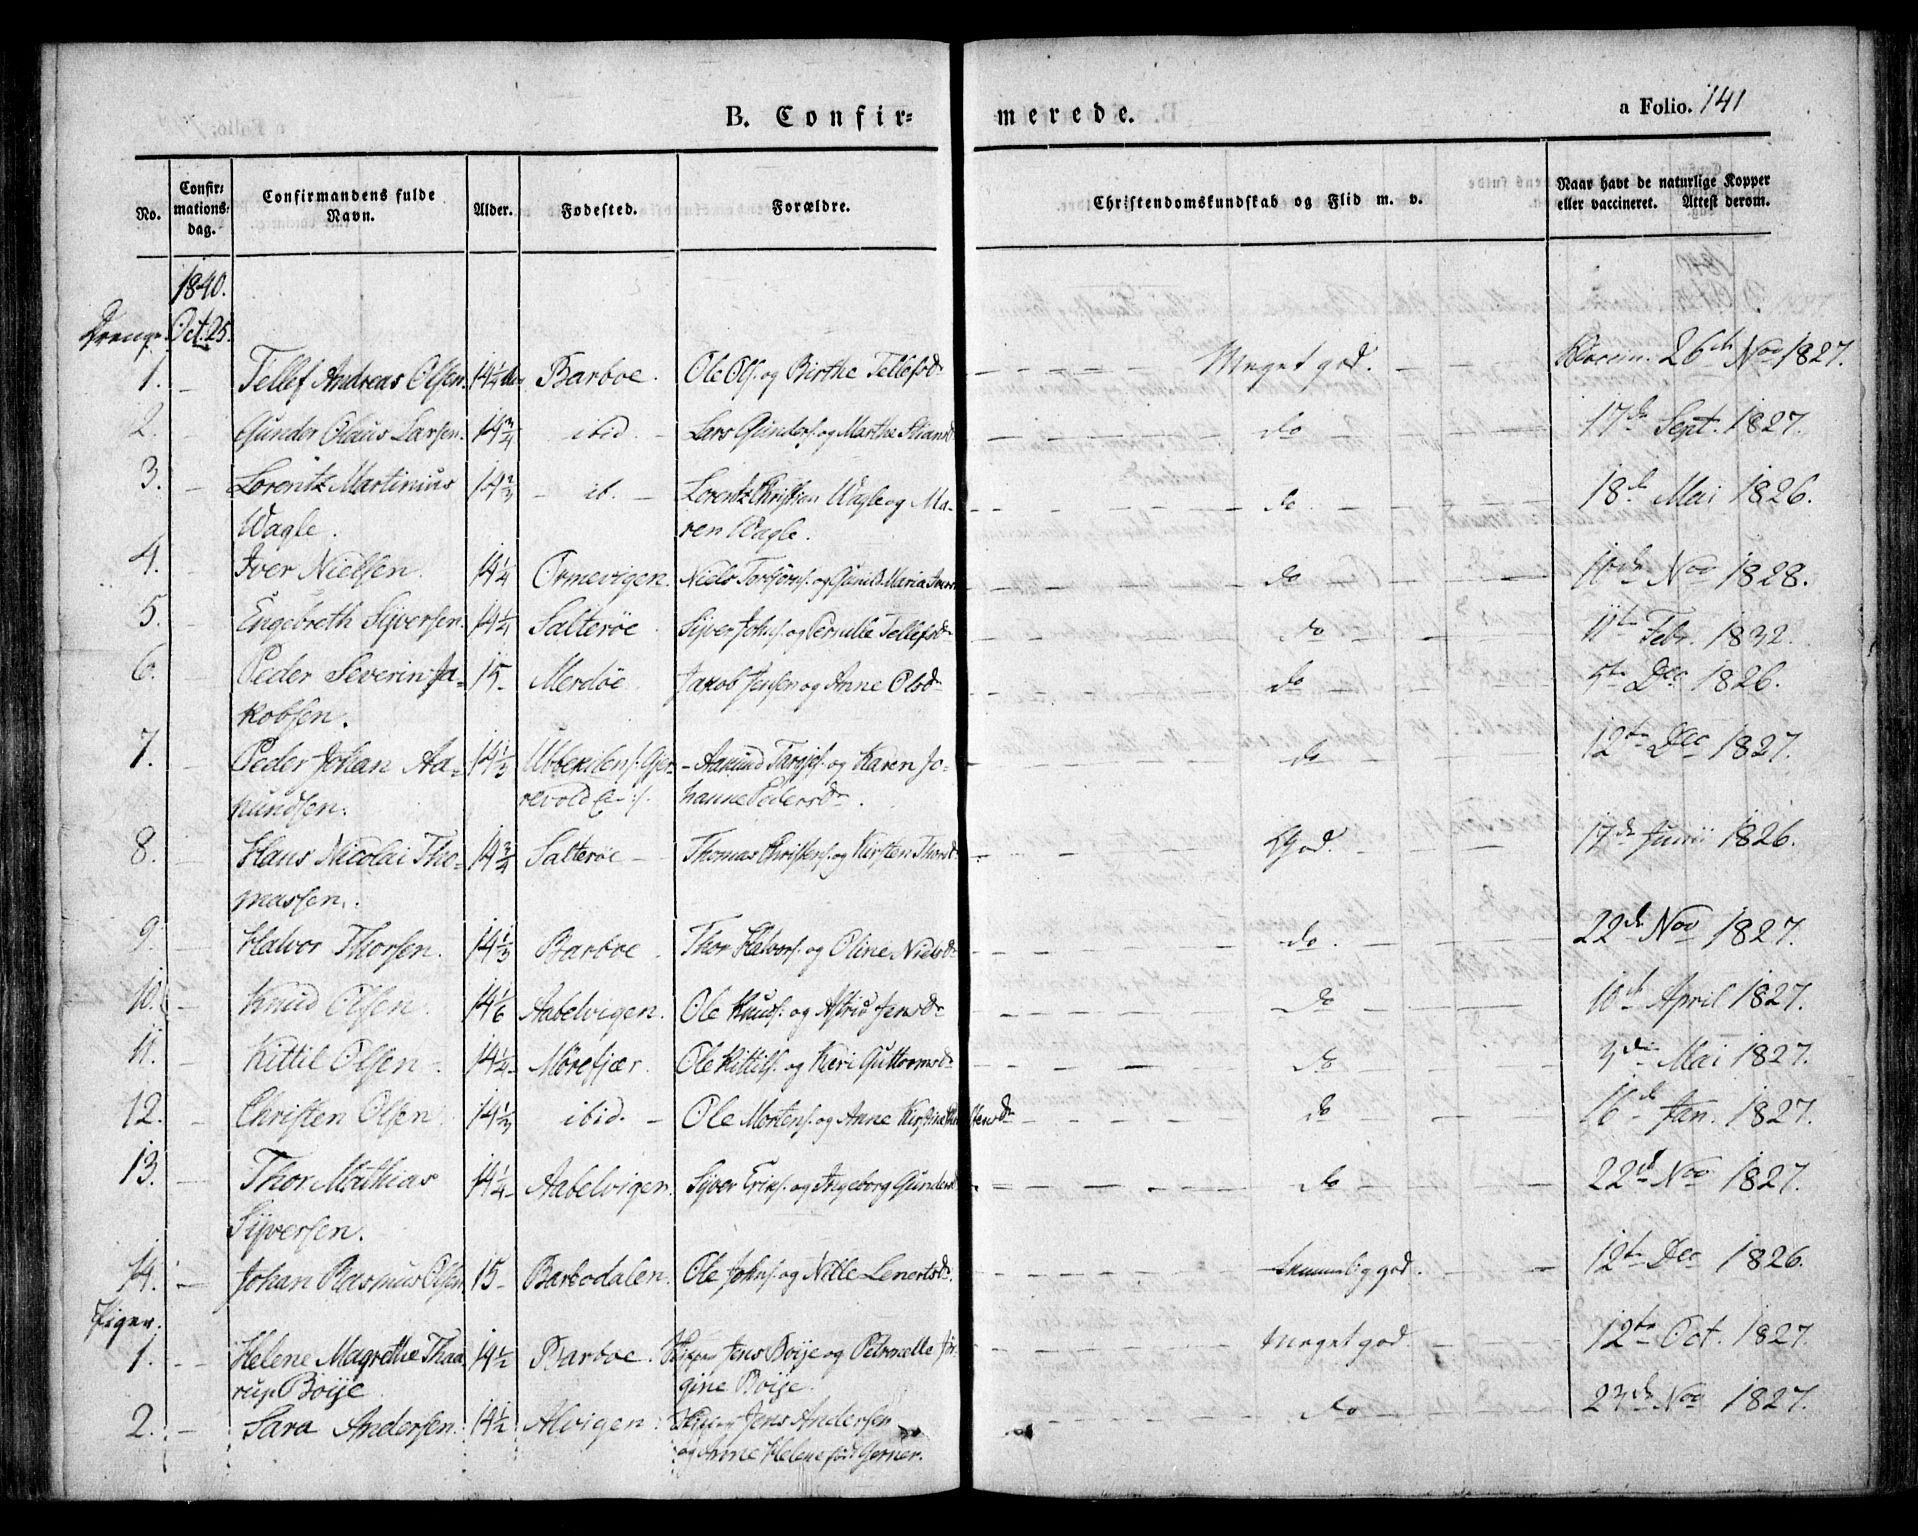 B. Confir=
merede.
a Folio. 141
No.
Confir=
mations=
dag.
Confirmandens fulde
Navn.
Alder.
Fødested.
Forældre.
Christendomskundskab og Flid m. v.
Naar havt de naturlige Kopper
eller vaccineret. Attest derom.
1840.
Drenge. Oct. 25.
1. Tellef Andreas Olsen. 14 1/4 Barboe. Ole Ols. og Birthe Tellefsdr Meget god. Vaccin. 26de Nov 1827.
2. Gunder Olaus Larsen. 14 3/4 ibid. Lars Gunders. og Marthe do 17de Sept. 1827.
3. Lorentz Martinius 14 2/3 ib. Lorentz Christian Wagle og Ma- do. 18de Mai 1826.
Wagle. ren Wagle.
4. Iver Nielsen. 14 1/4 Ormevigen. Niels og Gunild Maria do 10de Nov 1828.
5. Engebreth Syversen. 14 1/4 Salterøe. Syver Johns. og Pernille Tellefsdr do 11te Febr. 1832.
6. Peder Severin Ja- 15 Merdøe. Jakob Jensen og Anne Olsdr do 5te Dec 1826.
kobsen.
7. Peder Johan Aa- 14 1/3 Aanund og Karen Jo- do 12te Dec 1827.
nundsen. hanne Pedersdr.
8. Hans Nicolai Tho- 14 3/4 Salterøe Thomas Christens. og Kirsten Thorsdr God. 17de Junii 1826.
massen.
9. Halvor Thorsen. 14 1/3 Barboe. Thor Halvors. og Oline Nielsdr do. 22de Nov 1827.
10. Knud Olsen. 14 1/6 Aabelvigen. Ole Knuds. og Astrid Jensdr do 10de April 1827.
11. Kittil Olsen 14 1/4 Mørefjær. Ole Kittils. og Kari Guttormsdr do Mai 1827.
12. Christen Olsen 14 1/3 ibid. Ole Mortens. og Anne Kirstine do 16de Jan. 1827.
13. Thor Mathias 14 1/4 Aabelvigen. Syver Eriks. og Ingeborg Gundersdr do 22de Nov 1827.
Syversen.
14. Johan Rasmus Olsen 15 Barbodalen. Ole Johns. og Nille Lenertsdr. temmelig god. 12te Dec 1826.
Piger.
1. Helene Magrethe Thaa 14 1/2 Barboe. Skipper Jens Boije og Petronelle Jør- meget god 12te Oct. 1827.
rup Boije gine Boije.
2. Sara Andersen. 14 1/2 Alvigen. Skipper Jens Andersen do 23de Nov 1827.
og Anne Helene født Gerner.